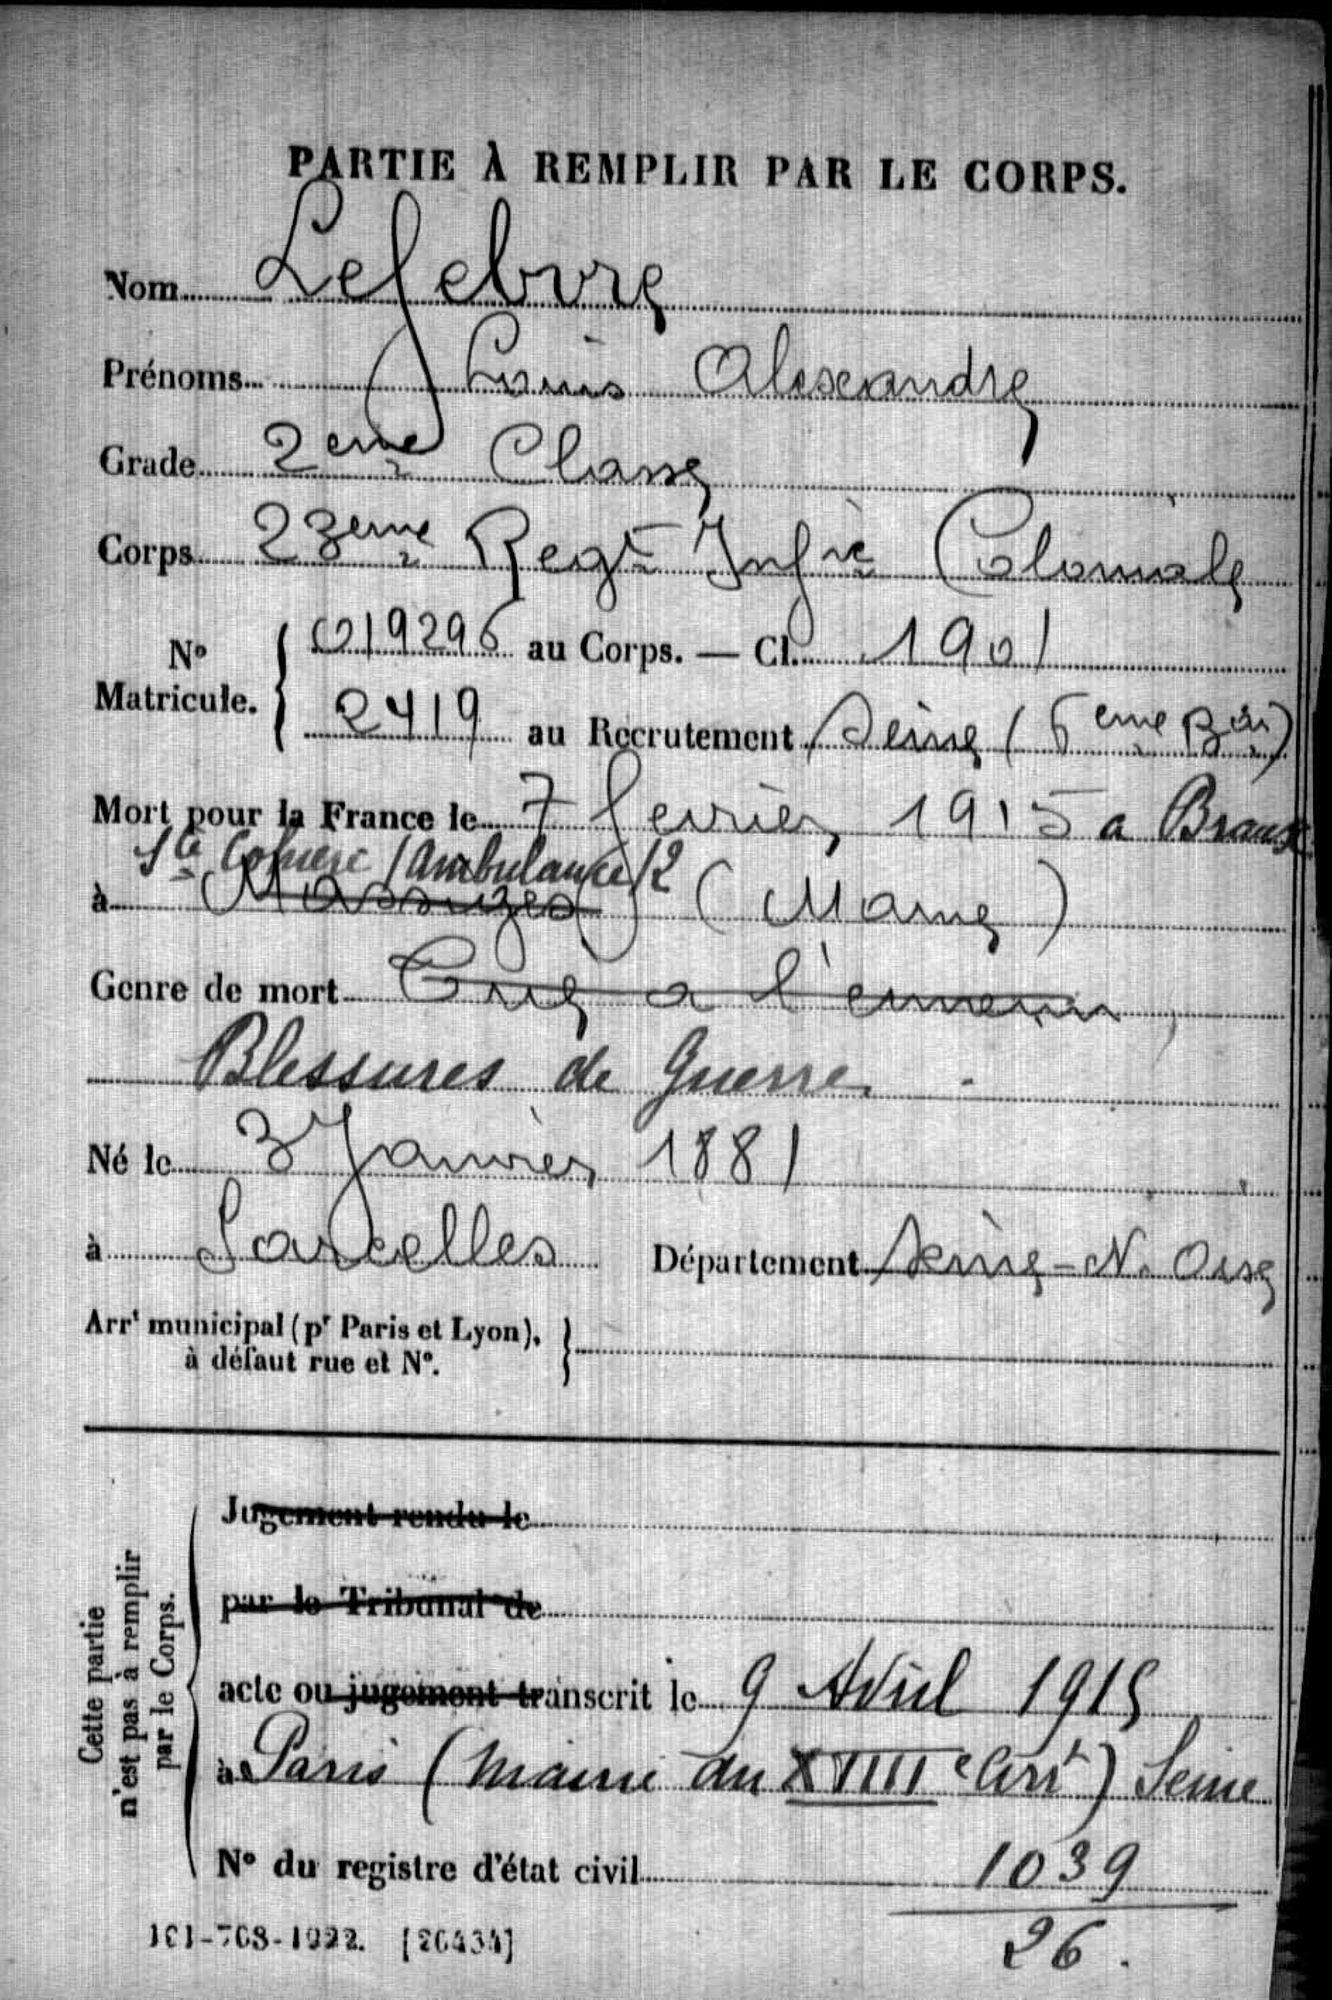 PARTIE À REMPLIR PAR LE CORPS.
Nom Lefebvre
Prénoms Louis Alexandre
Grade 2eme Classe
Corps 23eme Regt Infie Coloniale
No Matricule. 019296 au Corps. — Cl. 1901
2419 au Recrutement Seine (6eme Bau)
Mort pour la France le 7 fevrier 1915 a Braux
Ste Cohiere (Ambulance /2
à Massiges (Marne)
Genre de mort Tué a l'ennemi
Blessures de Guerre
Né le 3 Janvier 1881
à Sarcelles Département Seine-N. Oise
Arrt municipal (pr Paris et Lyon), à défaut rue et No.
Cette partie n'est pas à remplir par le Corps.
Jugement rendu le
par le Tribunal de
acte ou jugement transcrit le 9 Avril 1915
à Paris (Mairie du XVIIIe Arrt) Seine
No du registre d'état civil 1039
26.
101-708-1922. [26434]